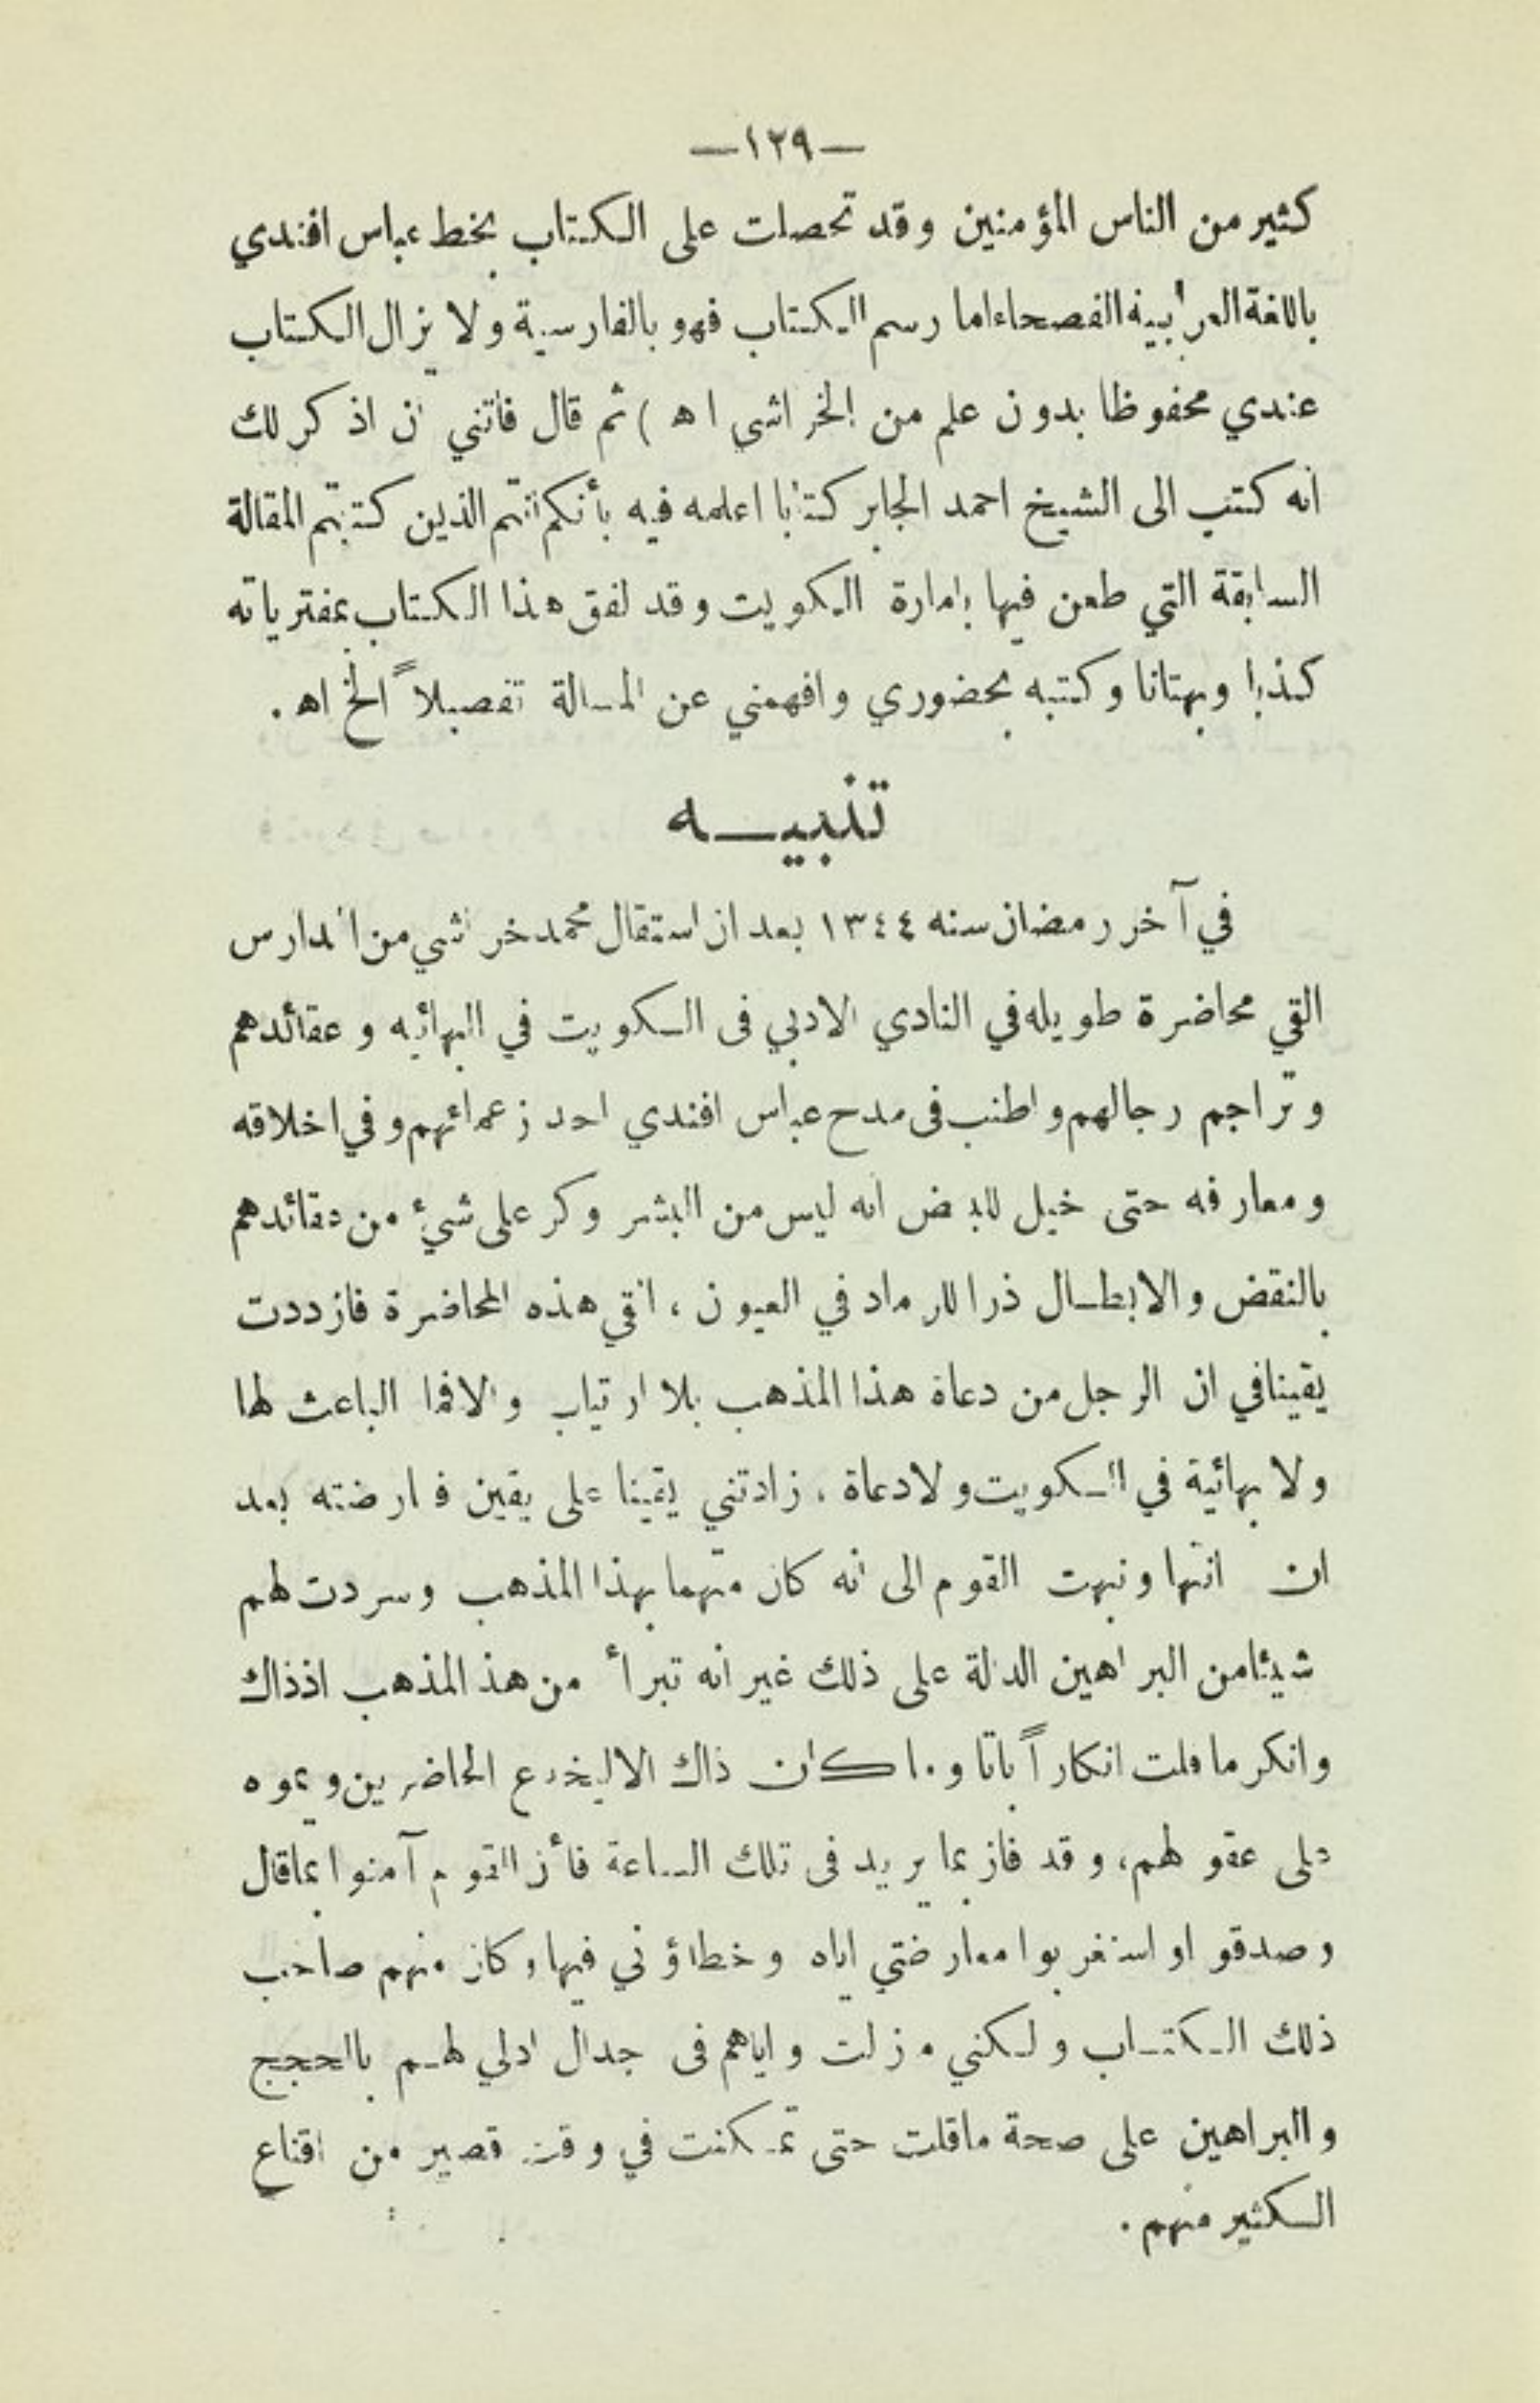 —١٢٩—
كثير من الناس المؤمنين وقد تحصلت على الكتاب بخط عباس افندي
باللغة العرابية الفصحاء اما رسم الكتاب فهو بالفارسية ولا يزال الكتاب
عندي محفوظا بدون علم من الخراشي اه ) ثم قال فاتني ان اذكر لك
انه كتب الى الشيخ احمد الجابر كتابا اعلمه فيه بأنكم انتم الذين كتبتم المقالة
السابقة التي طعن فيها بامارة الكويت وقد لفق هذا الكتاب بمفترياته
كذبا وبهتانا وكتبه بحضوري وافهمني عن المسالة تفصيلاً الخ اه .
تنبيـــه
في آخر رمضان سنه ١٣٤٤ بعد ان استقال محمد خراشي من المدارس
القي محاضرة طويله في النادي الادبي فى الكويت في البهائيه و عقائدهم
وتراجم رجالهم واطنب فى مدح عباس افندي احد زعمائهم وفي اخلاقه
ومعارفه حتى خيل للبعض انه ليس من البشر وكر على شيء من عقائدهم
بالنقض والابطـال ذرا للرماد في العيون ، القي هذه المحاضرة فازددت
يقينا في ان الرجل من دعاة هذا المذهب بلا ارتياب والا فما الباعث لها
ولا بهائية في الكويت ولا دعاة ، زادتني يقينا على يقين فعارضته بعد
ان انتها ونبهت القوم الى انه كان متهما بهذا المذهب وسردت لهم
شيئا من البراهين الدالة على ذلك غير انه تبرأ من هذ المذهب اذذاك
وانكر ما قلت انكاراً باتا وما كان ذاك الا ليخدع الحاضرين ويموه
على عقولهم، وقد فاز بما يريد فى تلك الساعة فأن القوم آمنوا بما قال
وصدقو او استغربوا معارضتي اياه وخطاؤني فيها وكان منهم صاحب
ذلك الكتـاب ولكني مازلت واياهم فى جدال ادلي لهـم بالحجج
والبراهين على صحة ماقلت حتى تمكنت في وقت قصير من اقناع
الكثير منهم .